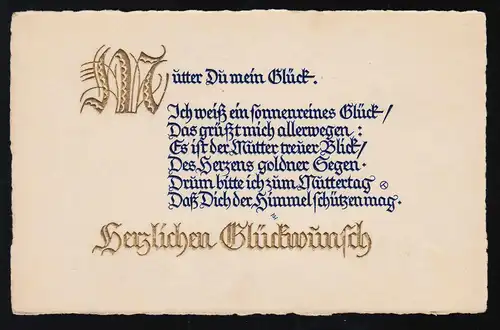 Mutter Du mein Glück.
Ich weiß ein sonnenreines Glück/
Das grüßt mich allerwegen:
Es ist der Mutter treuer Blick/
Des Herzens goldner Segen.
Drum bitte ich zum Muttertag
Daß Dich der Himmel schützen mag.
Herzlichen Glückwunsch